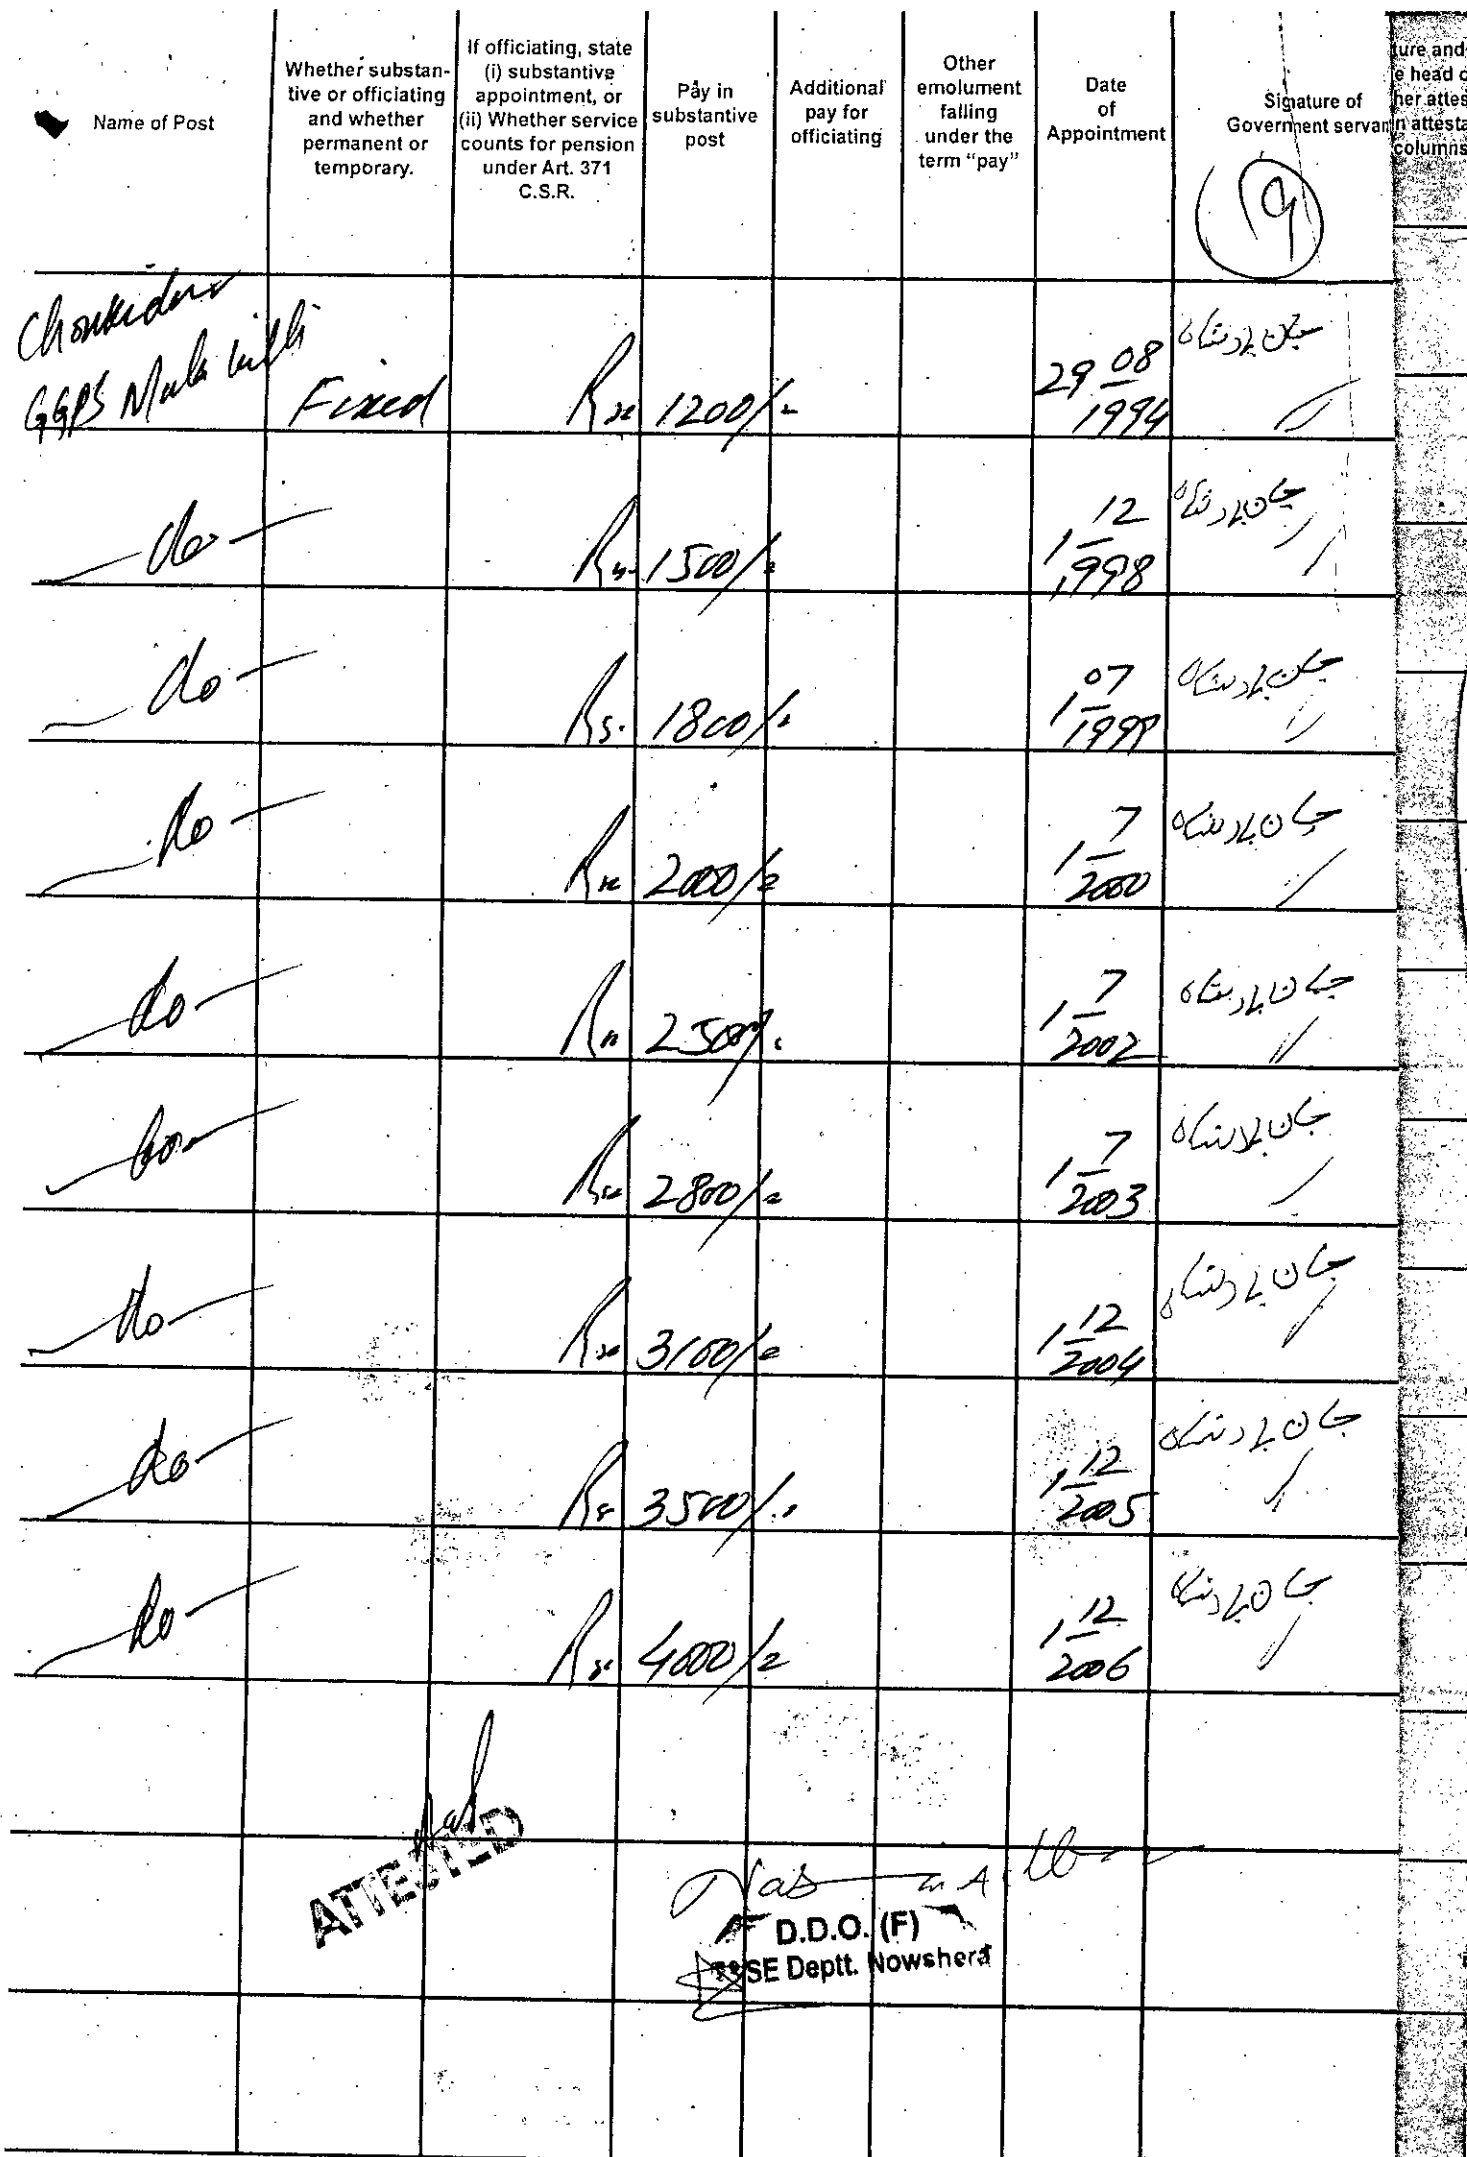 Name of Post
Whether substan-
tive or officiating
and whether
permanent or
temporary.
If officiating, state
(i) substantive
appointment, or
(ii) Whether service
counts for pension
under Art. 371
C.S.R.
Pay in
substantive
post
Additional
pay for
officiating
Other
emolument
falling
under the
term "pay"
Date
of
Appointment
Signature of
Government servan
ture and
e head o
her attes
n attesta
columns
19
Chowkidar
GGPS
Fixed Rs 1200/= 29 08 1994 جان بادشاہ
do Rs. 1500/= 1 12 1998 جان بادشاہ
do Rs. 1800/= 1 07 1999 جان بادشاہ
do Rs 2000/= 1 7 2000 جان بادشاہ
do Rs 2500/= 1 7 2002 جان بادشاہ
do Rs 2800/= 1 7 2003 جان بادشاہ
do Rs 3100/= 1 12 2004 جان بادشاہ
do Rs 3500/= 1 12 2005 جان بادشاہ
do Rs 4000/= 1 12 2006 جان بادشاہ
ATTESTED
D.D.O. (F)
SE Deptt. Nowshera